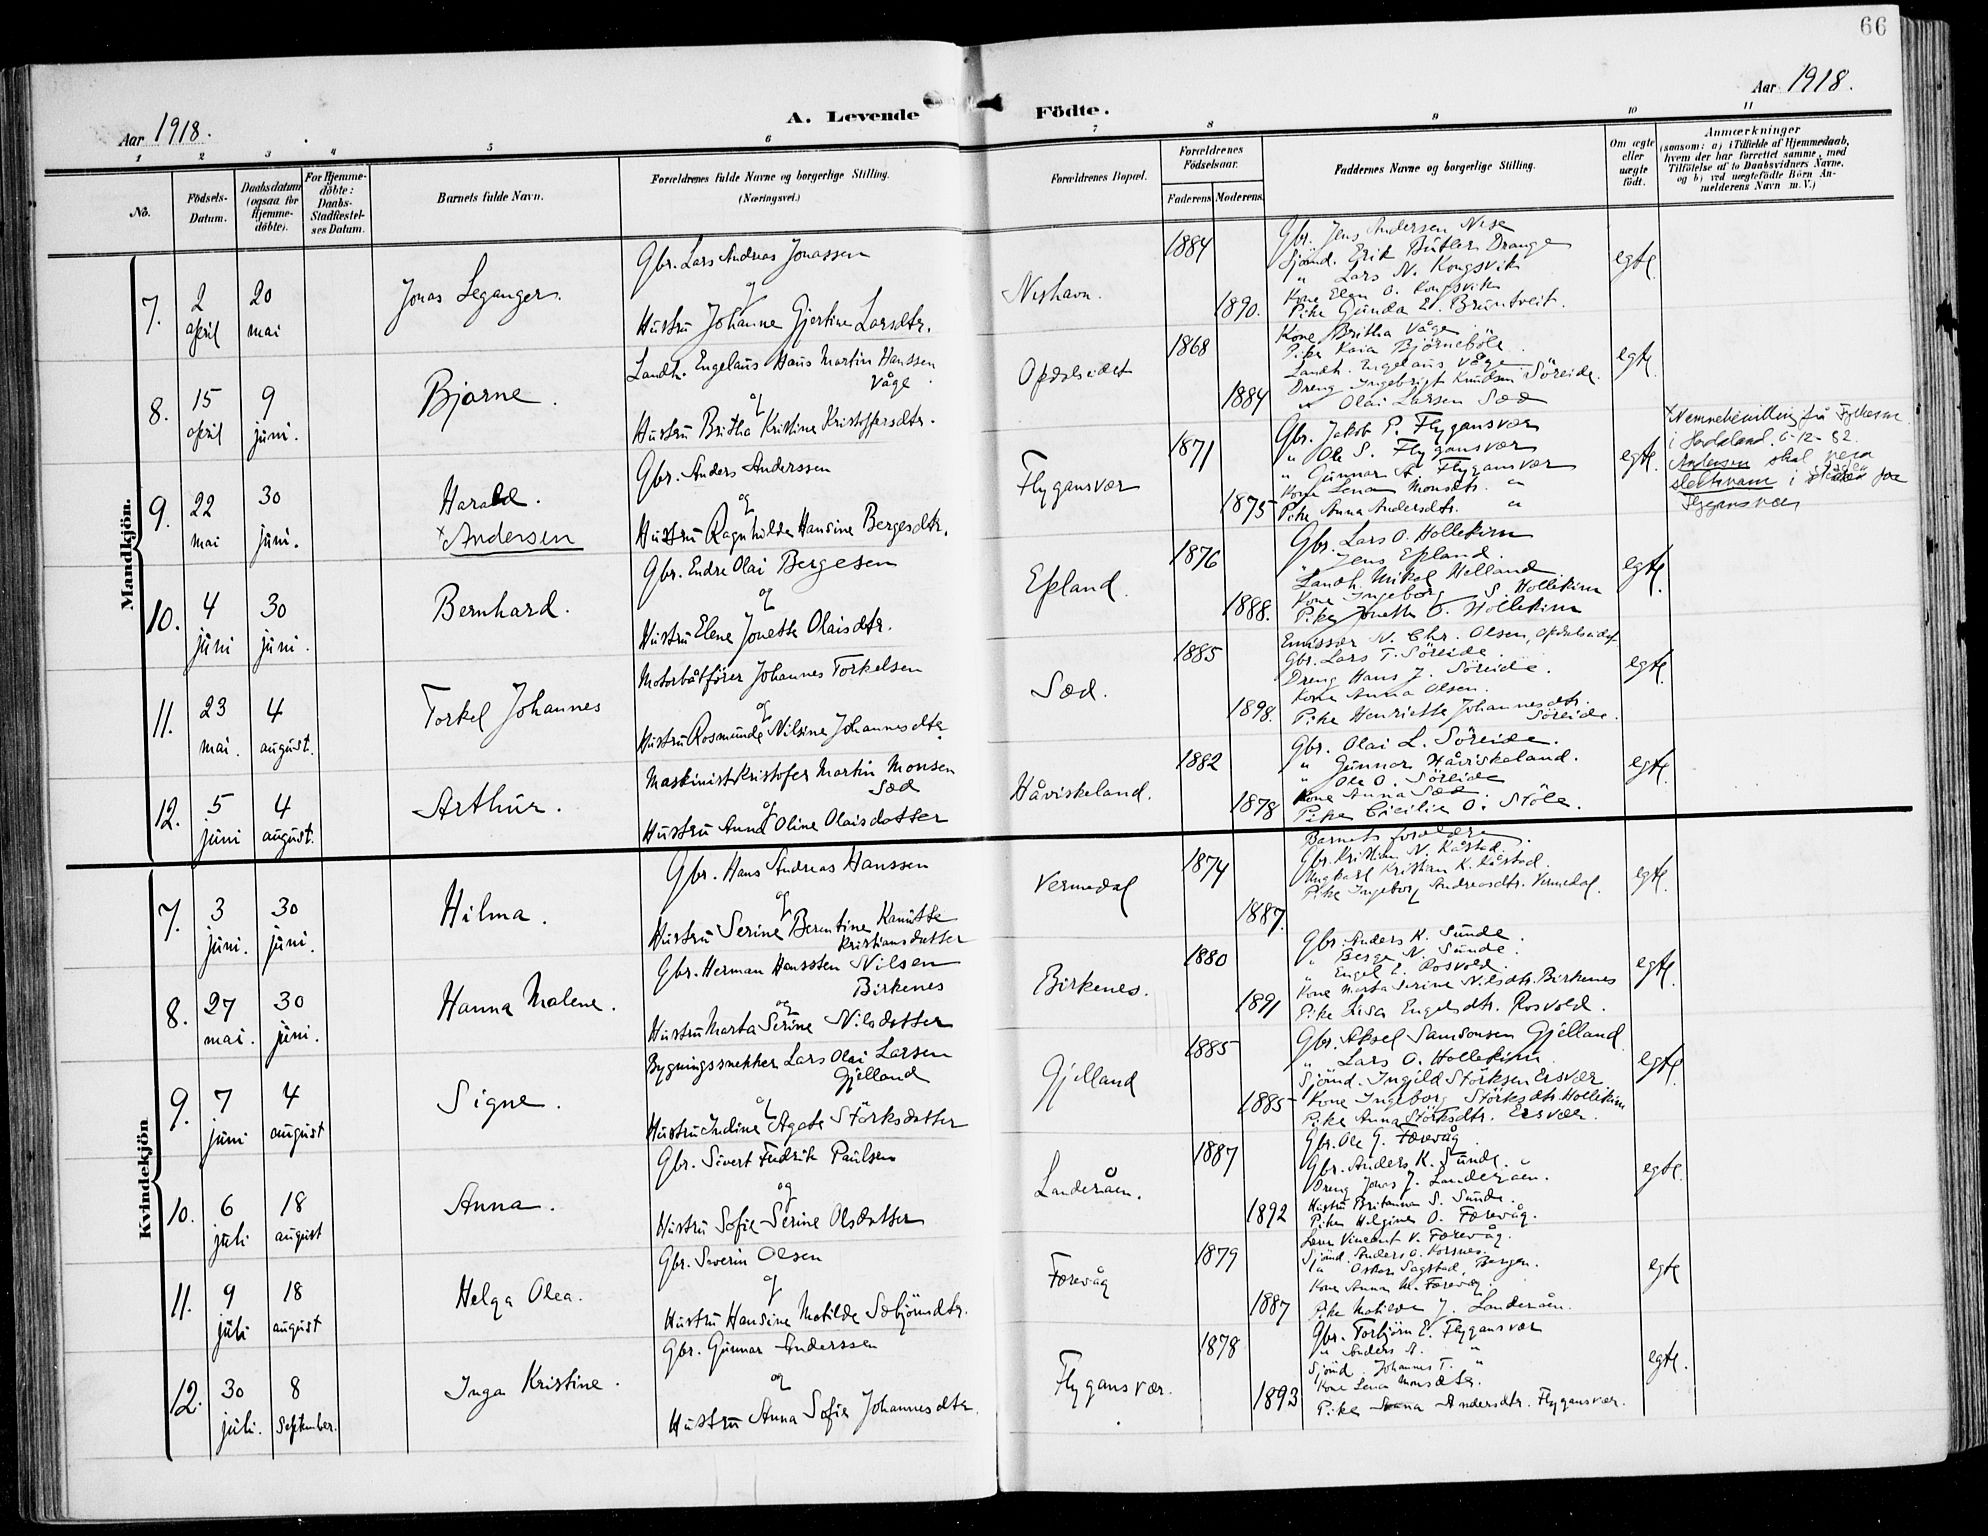 66
Aar 1918.
A. Levende Födte.
Aar 1918.
1 2 3 4 5 6 7 8 9 10 11
No.
Födsels-
Datum.
Daabsdatum
(ogsaa for
Hjemme-
døbte).
For Hjemme-
døbte:
Daabs-
Stadfæstel-
ses Datum.
Barnets fulde Navn.
Forældrenes fulde Navne og borgerlige Stilling.
(Næringsvei.)
Forældrenes Bopæl.
Forældrenes
Födselsaar.
Faderens Moderens
Faddernes Navne og borgerlige Stilling.
Om ægte
eller
uægte
født.
Anmærkninger
(saasom: a) i Tilfælde af Hjemmedaab,
hvem der har forrettet samme, med
Tilföielse af to Daabsvidners Navne,
og b) ved uægtefödte Börn An-
melderens Navn m.V.)
Mandkjön.
7.
2
april
20
mai
Jonas Leganger.
Gbr. Lars Andreas Jonassen
og
Hustru Johanne Gjertine Larsdtr.
Neshavn.
1884
1890.
Gbr. Jens Andersen Nese
Sjömd. Erik Butler Drange
" Lars N. Kongsvik
Kone Elen O. Kongsvik
Pike Gunda E. Bruntveit.
egte.
8.
15
april
9
juni.
Bjarne.
Landh. Engelaus Hans Martin Hanssen
Våge.
og
Hustru Britha Kristine Kristoffersdtr.
Opdalseidet
1868
1884
Kone Britha Våge
Pike Kaia Björneböle.
Landh. Engelaus Våge
Dreng Ingebrigt Knudsen Söreide.
" Olai Larsen Sæd
egte.
9.
22
mai
30
juni.
Harald.
x Andersen
Gbr. Anders Anderssen
og
Hustru Ragnhilda Hansine Bergesdtr.
Flygansvær
1871
1875
Gbr. Jakob P. Flygansvær
" Ole S. Flygansvær
" Gunnar A. Flygansvær
Kone Lena Monsdtr. "
Pike Anna Andersdtr. "
egte.
x Namnebevilling frå Fylkesm.
i Hordaland 6-12-82.
Andersen skal vera
slektsnamn i staden for
Flygansvær
10.
4
juni
30
juni.
Bernhard.
Gbr. Endre Olai Bergesen
og
Hustru Elene Jonette Olaisdtr.
Epland.
1876
1888.
Gbr. Lars O. Hollekim
" Jens Epland.
Landh. Mikal Helland
Kone Ingeborg S. Hollekim
Pike Jonette O. Hollekim
egte.
11.
23
mai.
4
august.
Torkel Johannes
Motorbåtförer Johannes Torkelsen
og
Hustru Rosmunde Nilsine Johannesdtr.
Sæd.
1885
1898.
Emissær N. Chr. Olsen, Opdalseidet
Gbr. Lars T. Söreide.
Dreng Hans J. Söreide.
Kone Anna Olsen.
Pike Henriette Johannesdtr.
Söreide.
egte.
12.
5
juni
4
august.
Arthur.
Maskinist Kristofer Martin Monsen
Sæd
og
Hustru Anna Oline Olaisdatter
Håviskeland.
1882
1878
Gbr. Olai L. Söreide.
" Gunnar Håviskeland.
" Ole O. Söreide
Kone Anna Sæd.
Pike Cicilie O. Stöle.
egte.
Kvindekjön
7.
3
juni.
30
juni.
Hilma.
Gbr. Hans Andreas Hanssen
og
Hustru Serine Berentine Kanutte
Kristiansdatter
Vermedal
1874
1887.
Barnets forældre.
Gbr. Kristian N. Kåstad.
Ungkarl Kristian K. Kåstad.
Pike Ingeborg Andreasdtr. Vermedal.
egte.
8.
27
mai.
30
juni.
Hanna Malene.
Gbr. Herman Hanssten Nilsen
Birkenes
og
Hustru Marta Serine Nilsdatter
Birkenes.
1880
1891
Gbr. Anders K. Sunde.
" Berge N. Sunde.
" Engel E. Rosvold.
Kone Marta Serine Nilsdtr. Birkenes
Pike Lisa Engelsdtr. Rosvold.
egte.
9.
7
juni
4
august
Signe.
Bygningssnekker Lars Olai Larsen
Gjelland
og
Hustru Indine Agate Störksdatter
Gjelland
1885
1885
Gbr. Aksel Samsonsen Gjelland
" Lars O. Hollekim
Sjömd. Ingild Störksen Ersvær
Kone Ingeborg Störksdtr. Hollekim
Pike Anna Störksdtr. Ersvær.
egte.
10.
6
juli
18
august
Anna.
Gbr. Sivert Fredrik Paulsen
og
Hustru Sofie Serine Olsdatter
Landeråen.
1887
1892
Gbr. Ole G. Færevåg
Gbr. Anders K. Sunde.
Dreng Jonas J. Landeråen.
Hustru Britanna S. Sunde.
Pike Helgine O. Færevåg.
egte.
11.
9
juli
18
august
Helga Olea.
Gbr. Severin Olsen
og
Hustru Hansine Matilde Sæbjörnsdtr.
Færevåg
1879
1887
Lærer Vincent V. Færevåg.
Sjömd. Anders O. Korsnes.
" Oskar Sagstad, Bergen.
Kone Anna M. Færevåg.
Pike Matilde J. Landeråen.
egte
12.
30
juli.
8
September.
Inga Kristine.
Gbr. Gunnar Anderssen
og
Hustru Anna Sofie Johannesdtr.
Flygansvær.
1878
1893
Gbr. Torbjörn E. Flygansvær
" Anders A. "
Sjömd. Johannes T. "
Kone Lena Monsdtr.
Pike Anna Andersdtr. Flygansvær.
egte.